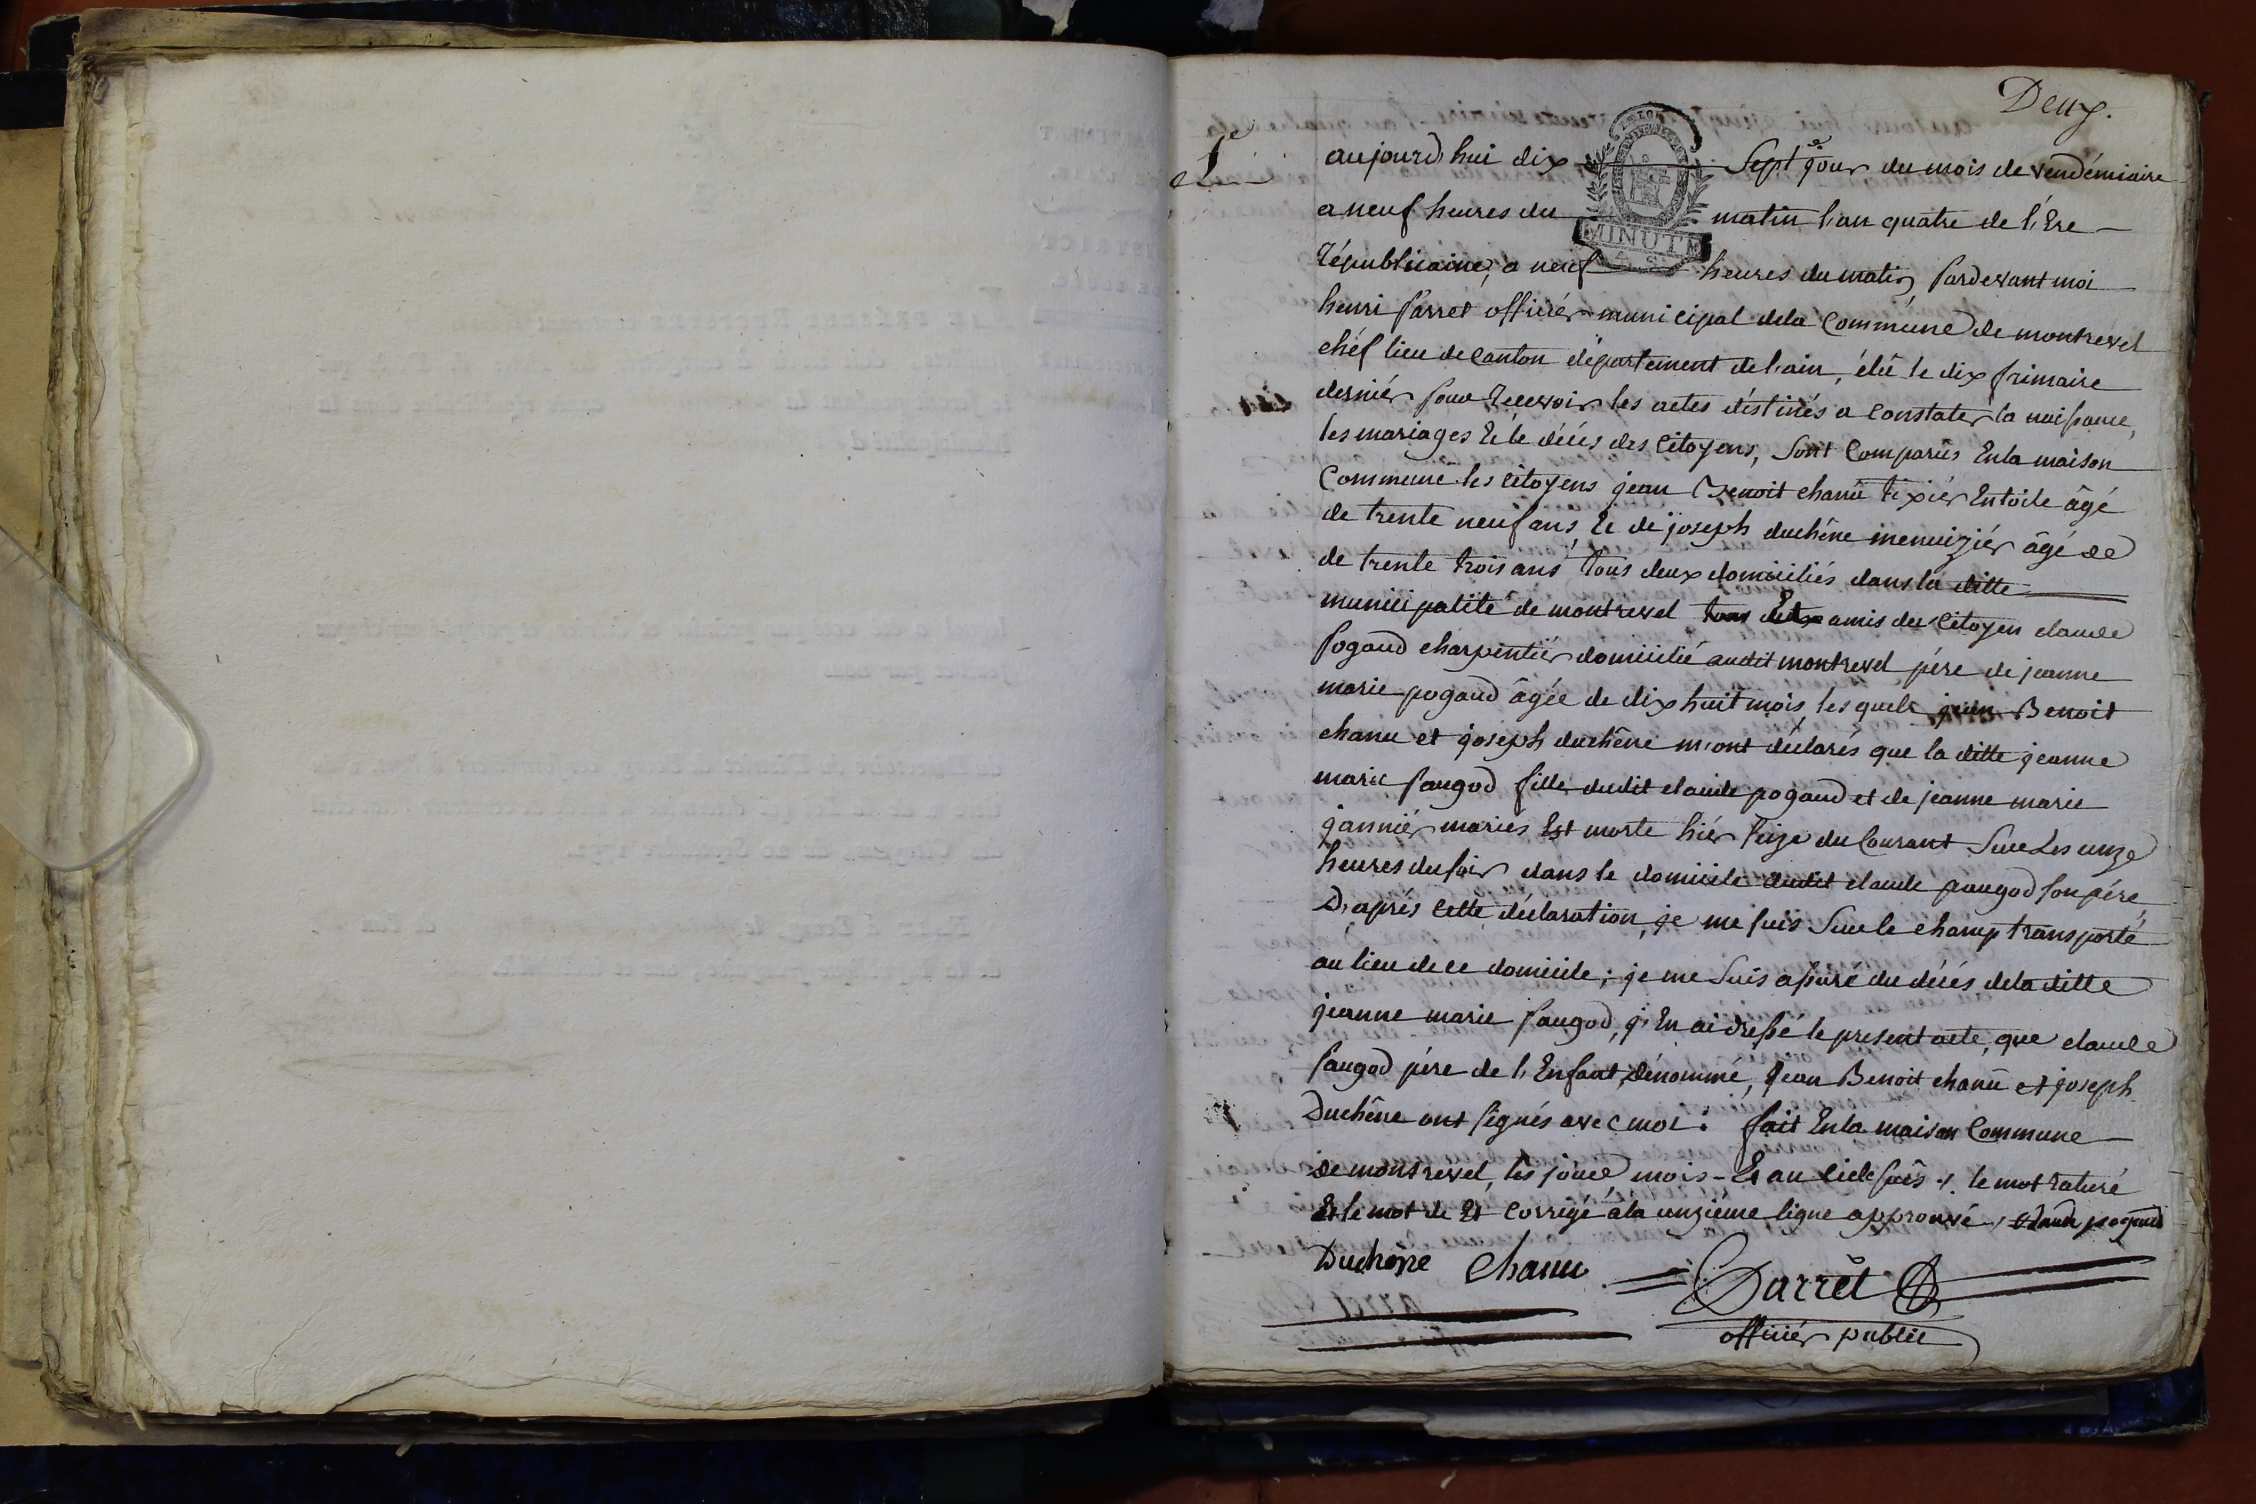 Deux.
1e
aujourd'hui dix sept e jour du mois de vendémiaire
a neuf heures du matin l'an quatre de l'Ere
MINUTE
Républicaine, a neuf heures du matin pardevant moi
henri parret officiér municipal dela Commune de montrevel
chéf lieu de canton département de l'ain, élû le dix frimaire
derniér pour Recevoir les actes déstinés a constater la naissance,
les mariages Et le décés des Citoyens, sont Comparûs En la maison
Commune les citoyens jean Benoit chanû tixiér En toile âgé
de trente neuf ans, Et de joseph duchêne menuiziér âgé de
de trente trois ans tous deux domiciliés dans la ditte
municipalité de montrevel amis du Citoyen claude
pogaud charpentiér domicilié audit montrevel pére de jeanne
marie pogaud âgée de dix huit mois, les quels jean Benoit
chanu et joseph duchêne m'ont déclarés que la ditte jeanne
marie paugod fille dudit claude pogaud et de jeanne marie
janniér mariés Est morte hiér seize du Courant sur Les onze
heures du soir dans le domicile dudit claude paugod son pére,
D'aprés cette déclaration, je me suis sur le champ transporté
au lieu de ce domicile; je me suis assuré du décés dela ditte
jeanne marie paugod, j'En ai dressé le present acte, que claude
paugod pére de l'Enfant dénommé, jean Benoit chanû et joseph
Duchêne ont signés avec moi. fait En la maison Commune
de montrevel, les jour mois Et an cidessus ./. le mot raturé
Et le mot de Et corrigé ala unzieme ligne approuvé, claude pogaud
Duchêne Chanu Parret
officiér public